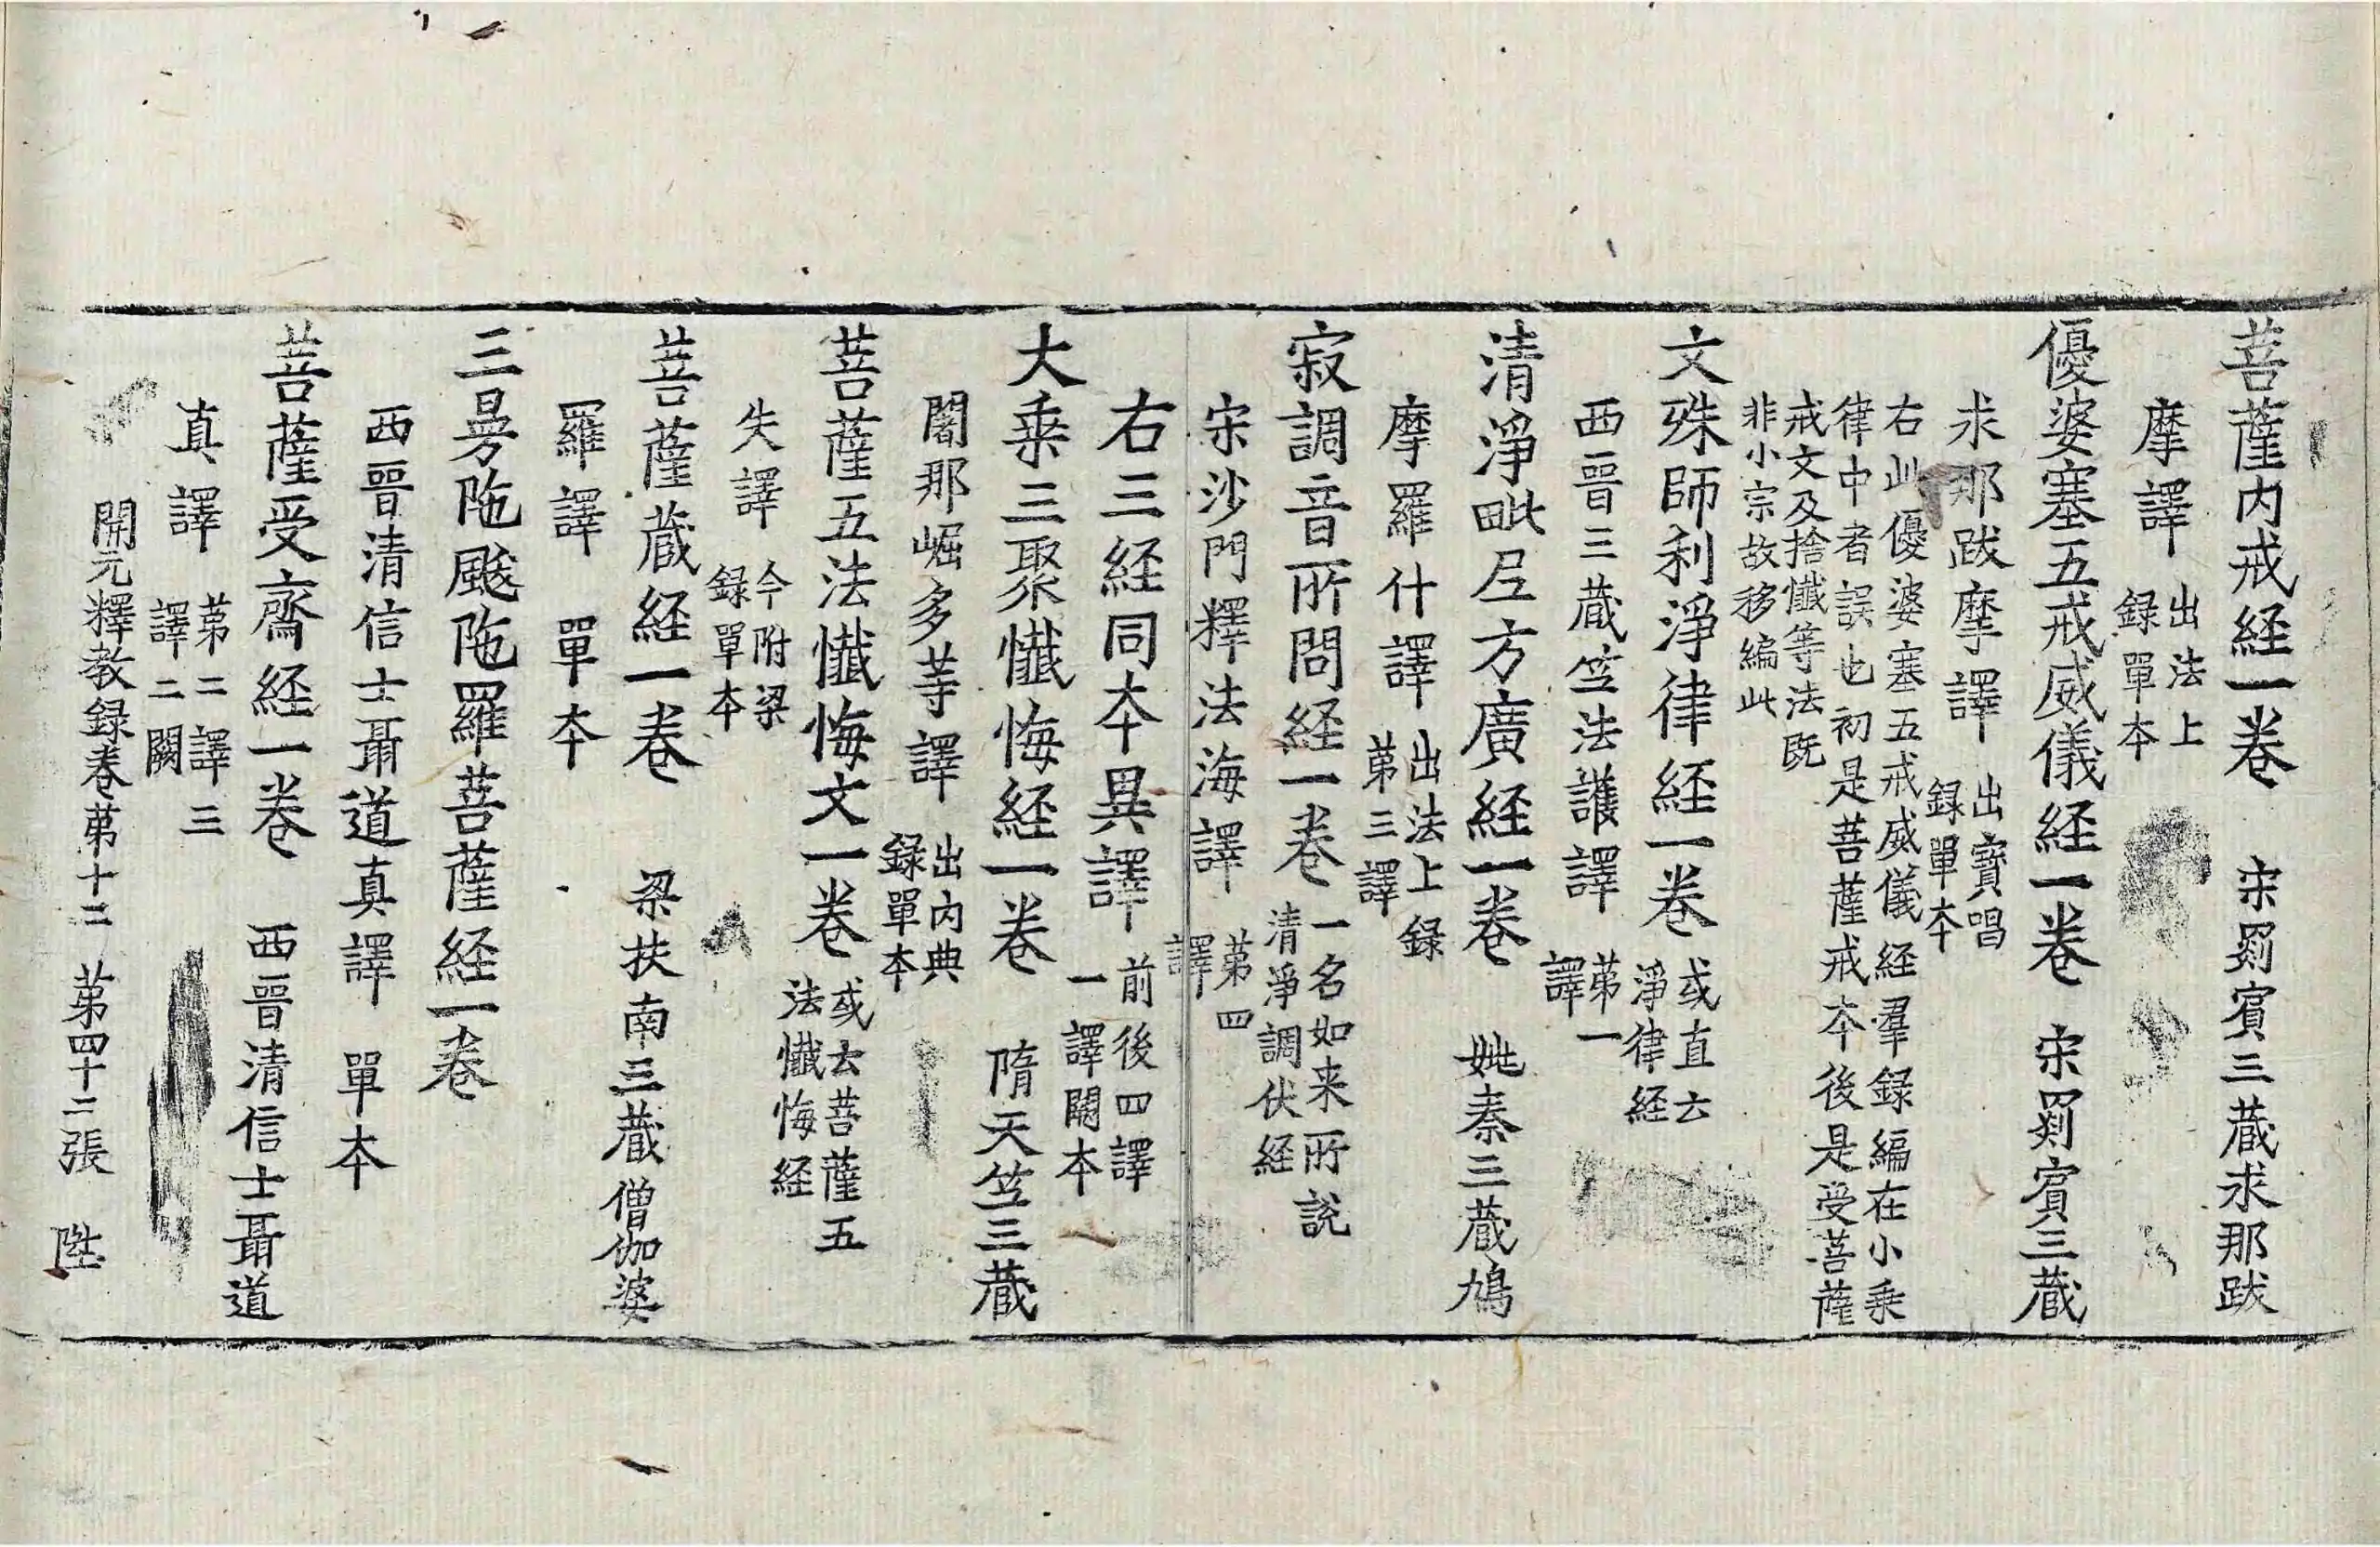 菩薩内戒経一卷　宋罽賓三蔵求那跋
摩譯　出法上録單夲
優婆塞五戒威儀経一卷　宋罽賓三蔵
求那跋摩譯　出寶唱録單夲
右此優婆塞五戒威儀経羣録編在小乗
律中者誤也初是菩薩戒夲後是受菩薩
戒文及捨懴等法既
非小宗故移編此
文殊師利淨律経一卷　或直云淨律経
西晋三蔵笁法護譯　苐一譯
清淨毗尼方廣経一卷　姚秦三蔵鳩
摩羅什譯　出法上録苐三譯
寂調音所問経一卷　一名如来所説清淨調伏経
宋沙門釋法海譯　苐四譯
右三経同夲異譯　前後四譯一譯闕夲
大乗三聚懴悔経一卷　隋天笁三蔵
闍那崛多䓁譯　出内典録單夲
菩薩五法懴悔文一卷　或云菩薩五法懴悔経
失譯　今附梁録單夲
菩薩蔵経一卷　梁扶南三蔵僧伽婆
羅譯　單夲
三曼陁颰陁羅菩薩経一卷
西晋清信士聶道真譯　單夲
菩薩受齋経一卷　西晋清信士聶道
真譯　苐二譯三譯二闕
開元釋教録卷苐十二　苐四十二張　陞